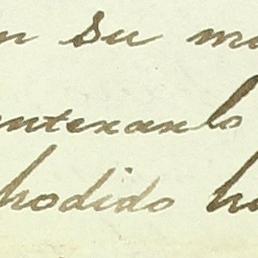 n su m
enterarlo
hodido h